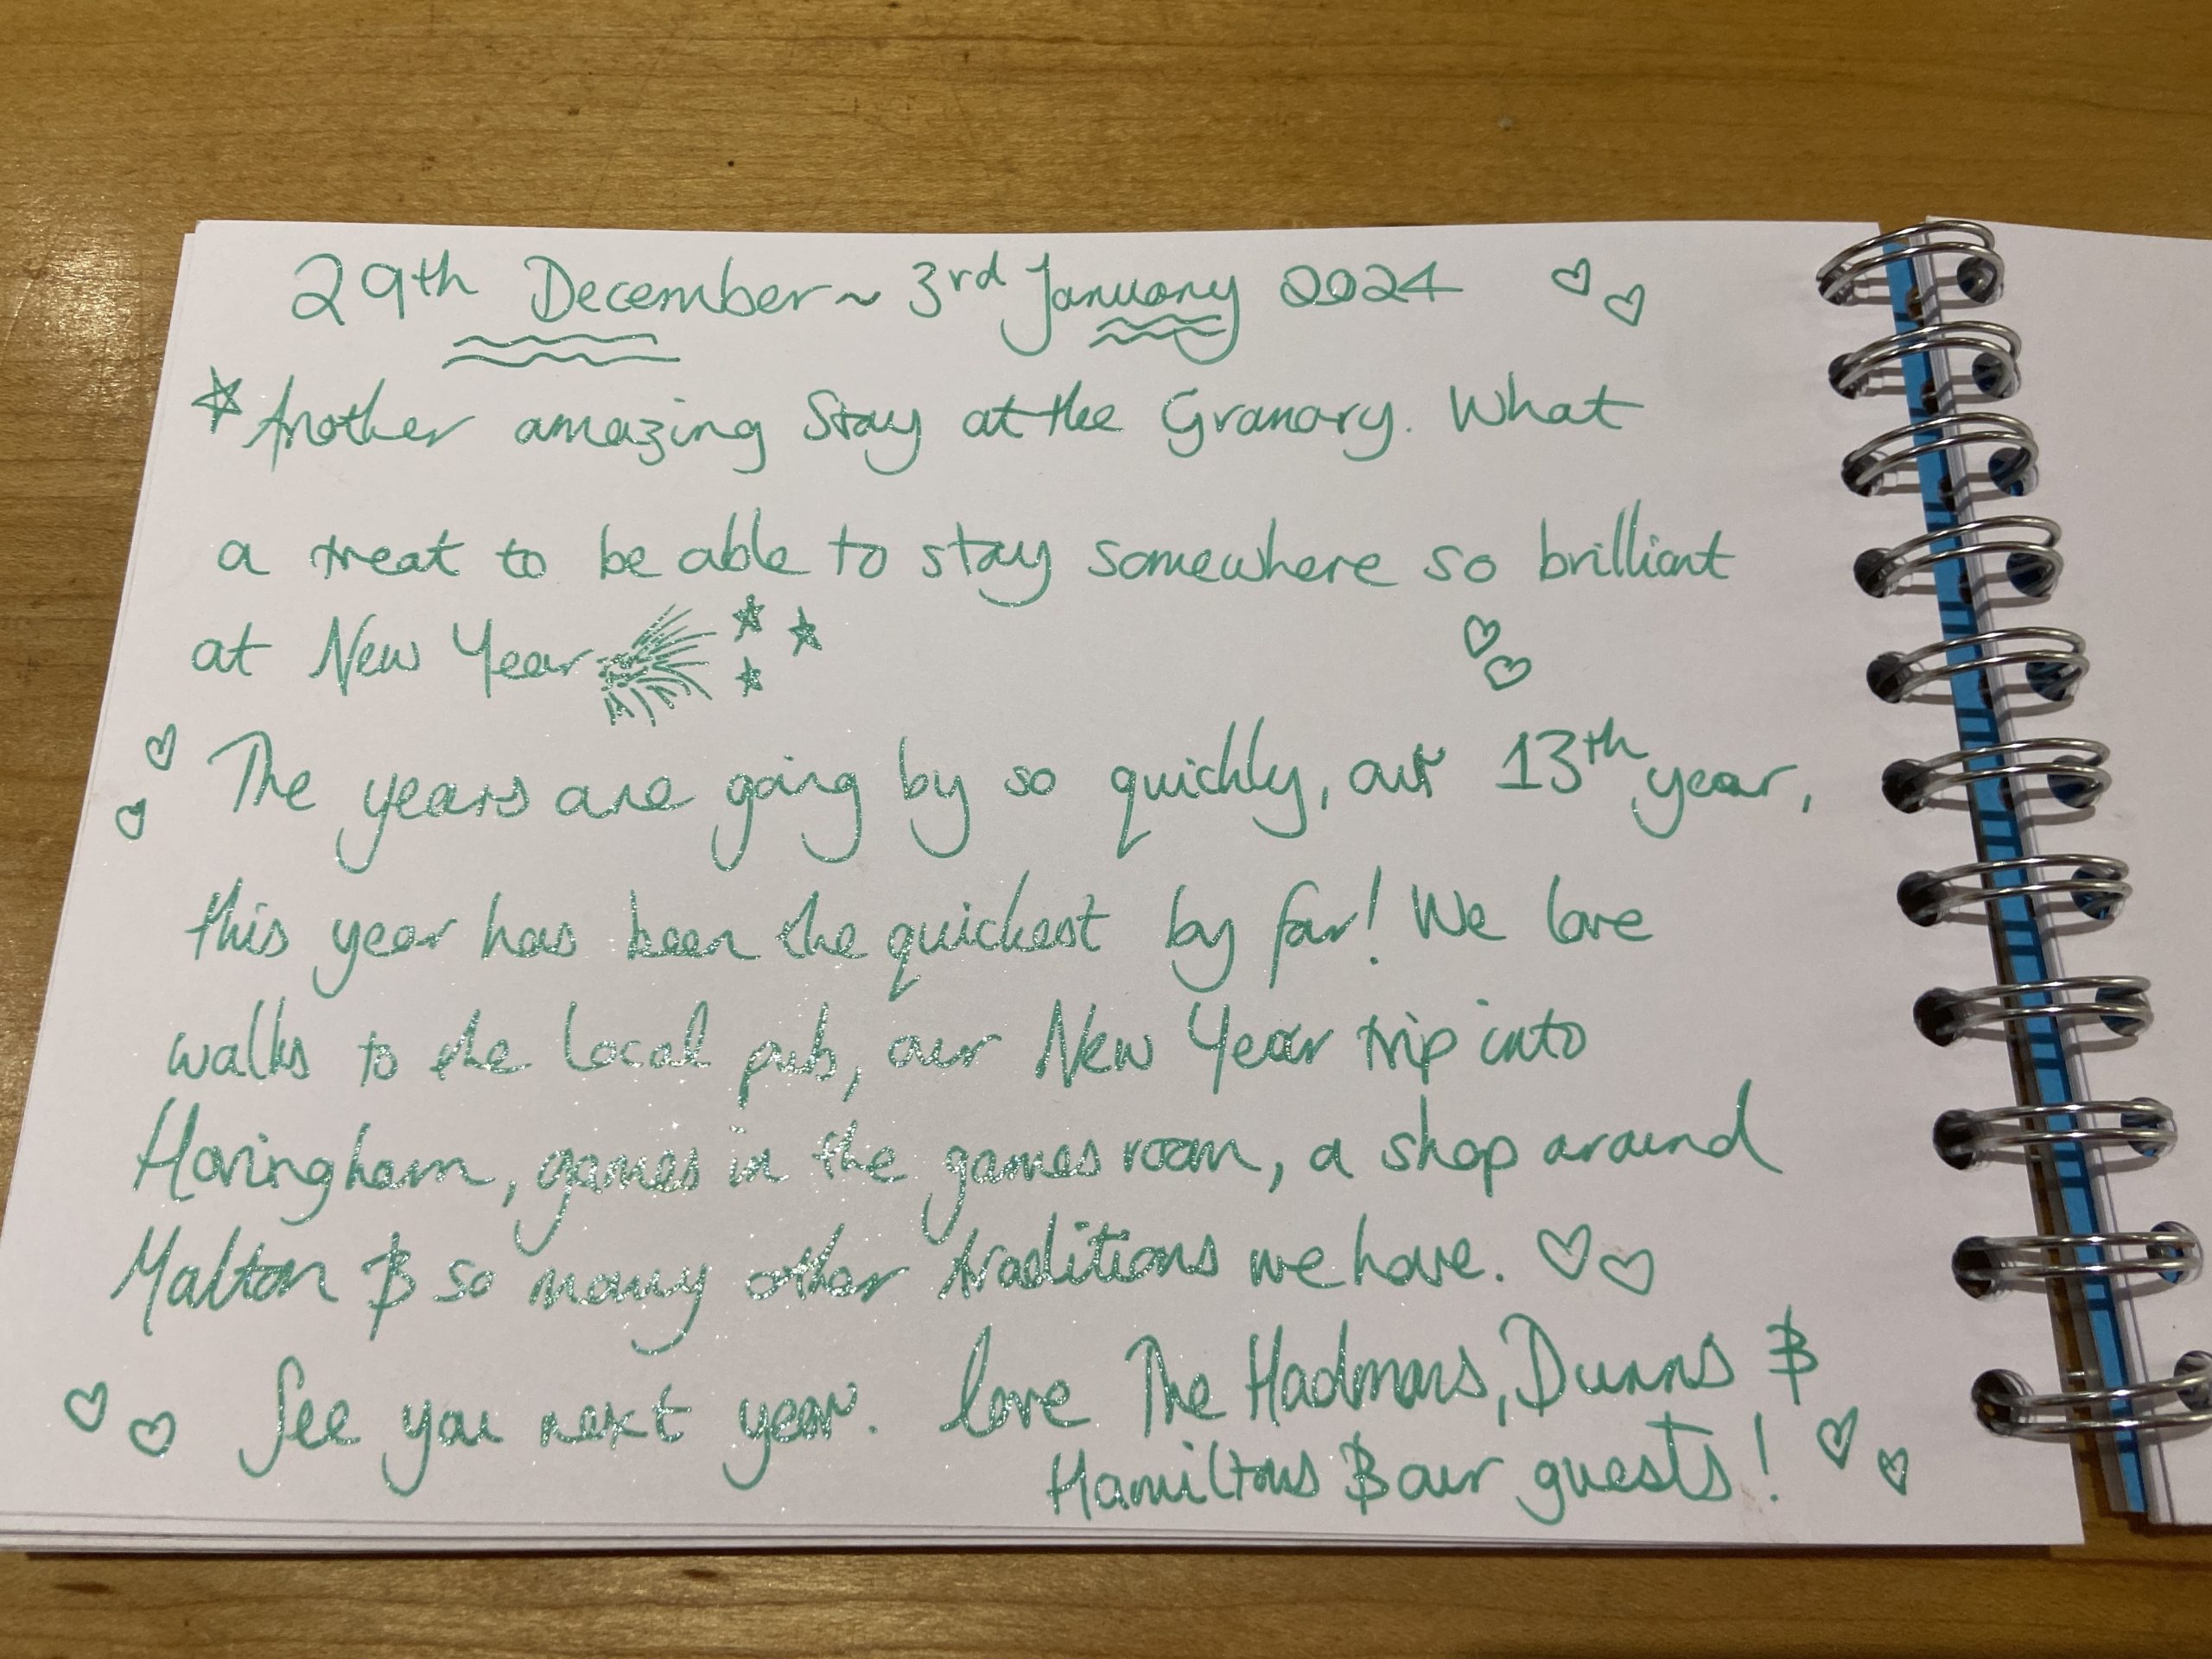 29th December ~ 3rd January 2024
Another amazing stay at the Granary. What
a treat to be able to stay somewhere so brilliant
at New Year
The years are going by so quickly, our 13th year,
this year has been the quickest by far! We love
walks to the local pub, our New Year trip into
Hovingham, games in the games room, a shop around
Malton & so many other traditions we have.
See you next year. love The Hadmans, Dunns &
Hamiltons & our guests!